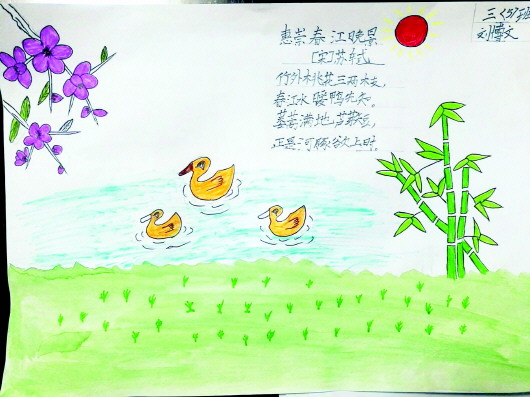 三〈5〉班
惠崇春江晚景
[宋]苏轼
竹外桃花三两枝,
春江水暖鸭先知。
蒌蒿满地芦芽短,
正是河豚欲上时。